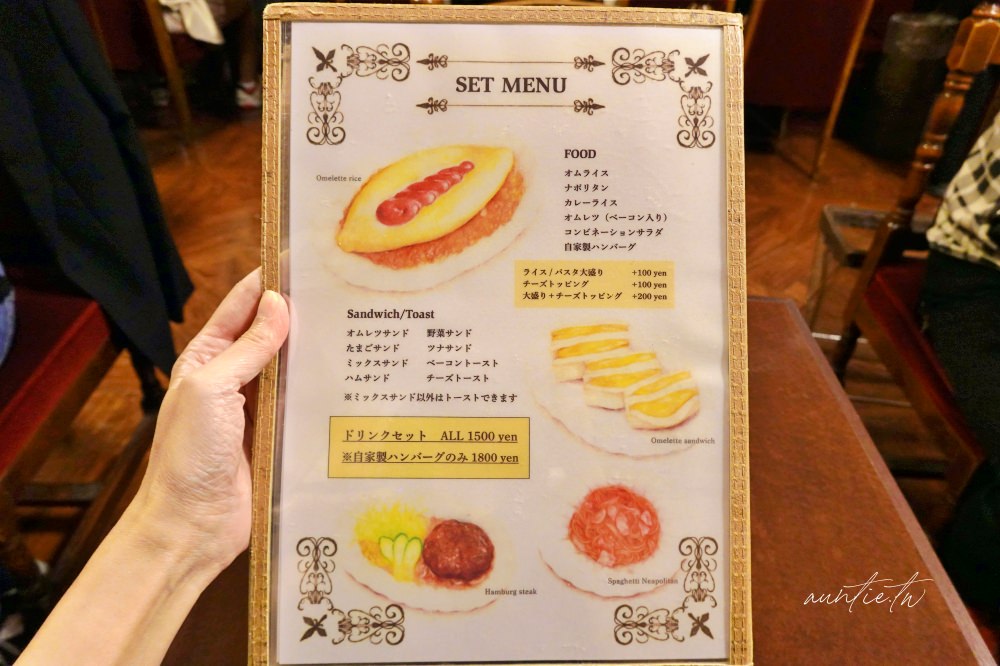 SET MENU
Omelette rice
FOOD
オムライス
ナポリタン
カレーライス
オムレツ（ベーコン入り）
コンビネーションサラダ
自家製ハンバーグ
ライス / パスタ大盛り +100 yen
チーズトッピング +100 yen
大盛り＋チーズトッピング +200 yen
Sandwich/Toast
オムレツサンド 野菜サンド
たまごサンド ツナサンド
ミックスサンド ベーコントースト
ハムサンド チーズトースト
※ミックスサンド以外はトーストできます
Omelette sandwich
ドリンクセット ALL 1500 yen
※自家製ハンバーグのみ 1800 yen
Hamburg steak
Spaghetti Neapolitan
auntie.tw